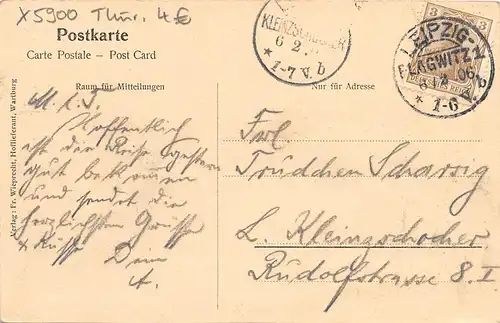 X5900 Thür. 4€
Postkarte
Carte Postale — Post Card
Raum für Mitteilungen
Nur für Adresse
KLEINZSCHOCHER
6 2
* 1-7 V. b
LEIPZIG-
PLAGWITZ 1
06
* 1-6 V. b
3 3
M. l. T.
Hoffentlich
ist die Reise gestern
gut bekommen
und sendet die
herzlichsten Grüsse
& Küsse Dein
A.
Frl
Trudchen
L. Kleinzschocher
Rudolfstrasse 8. I
Verlag: Fr. Wieprecht, Hoflieferant, Wartburg